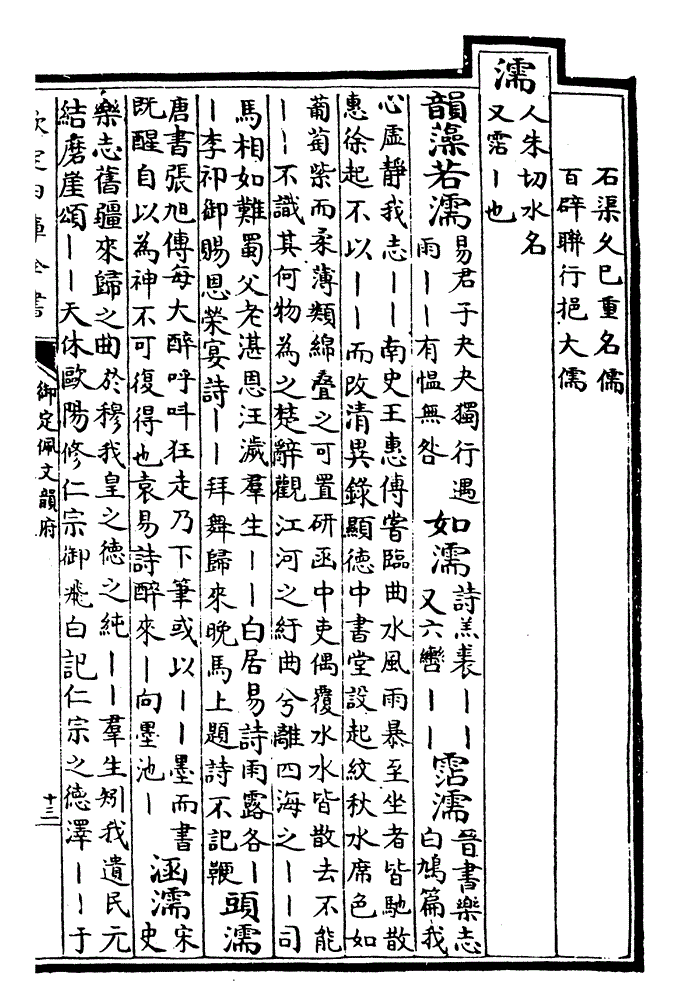 石渠久已重名儒
百辟聯行挹大儒
濡
人朱切水名
又霑丨也
韻藻若濡
易君子夬夬獨行遇
雨丨丨有愠無咎
如濡
詩羔裘丨丨
又六轡丨丨
霑濡
晉書樂志
白鳩篇我
心虛靜我志丨丨南史王惠傳嘗臨曲水風雨暴至坐者皆馳散
惠徐起不以丨丨而改清異錄顯德中書堂設起紋秋水席色如
葡萄紫而柔薄類綿疊之可置研函中吏偶覆水水皆散去不能
丨丨不識其何物為之楚辭觀江河之紆曲兮離四海之丨丨司
馬相如難蜀父老湛恩汪濊羣生丨丨白居易詩雨露各丨
丨李祁御賜恩榮宴詩丨丨拜舞歸來晚馬上題詩不記鞭
頭濡
唐書張旭傳每大醉呼叫狂走乃下筆或以丨丨墨而書
既醒自以為神不可復得也袁易詩醉來丨向墨池丨
涵濡
宋
史
樂志舊疆來歸之曲於穆我皇之德之純丨丨羣生矧我遺民元
結磨崖頌丨丨天休歐陽修仁宗御飛白記仁宗之德澤丨丨于
欽定四庫全書
御定佩文韻府
十三